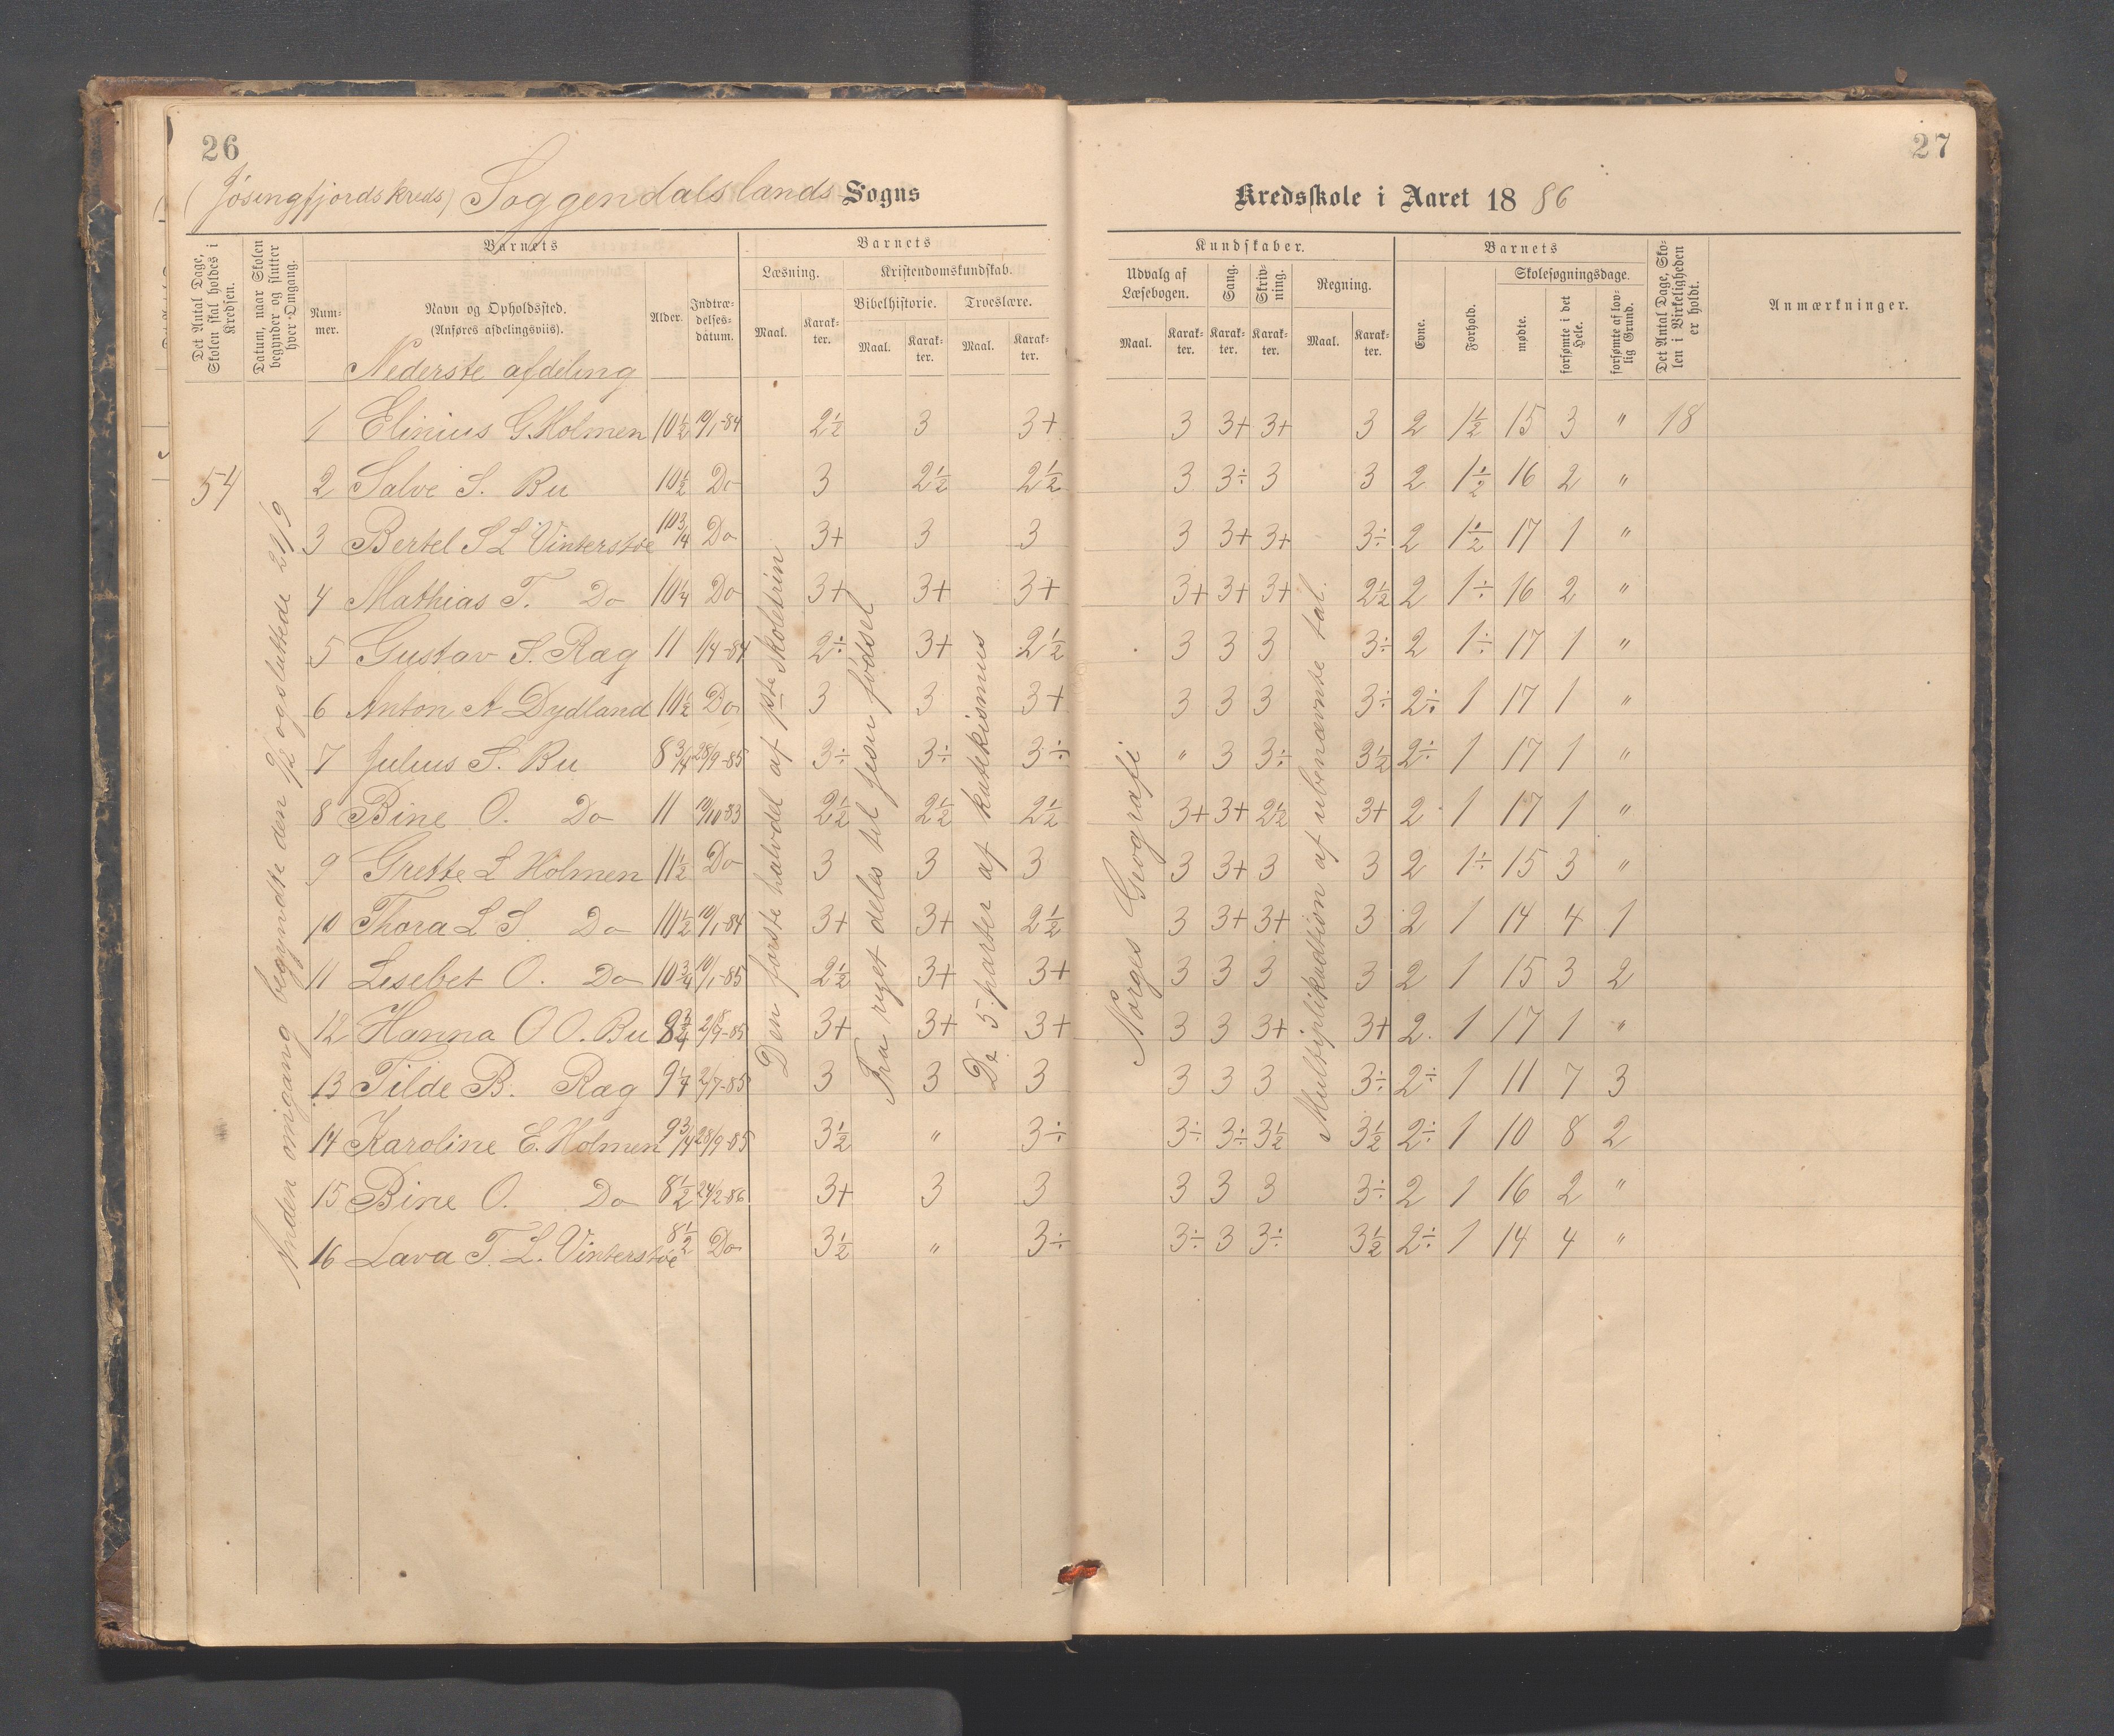 26
27
(Jøsingfjords kreds) Soggendals lands Sogns
Kredsskole i Aaret 1886
Det Antal Dage, Skolen skal holdes i Kredsen.
Datum, naar Skolen begynder og slutter hver Omgang.
Barnets
Nummer.
Navn og Opholdssted.
(Anføres afdelingsviis).
Alder.
Indtrædelsesdatum.
Barnets
Læsning.
Maal.
Karakter.
Kristendomskundskab.
Bibelhistorie.
Maal.
Karakter.
Troeslære.
Maal.
Karakter.
Kundskaber.
Udvalg af Læsebogen.
Maal.
Karakter.
Sang.
Karakter.
Skrivning.
Karakter.
Regning.
Maal.
Karakter.
Barnets
Evne.
Forhold.
Skolesøgningsdage.
mødte.
forsømte i det Hele.
forsømte af lovlig Grund.
Det Antal Dage, Skolen i Virkeligheden er holdt.
Anmærkninger.
Nederste afdeling
54
Anden omgang begyndte den 9/2 og sluttede 21/9
Den første halvdel af 1ste Skoletrin
Fra riget deles til Jesu fødsel
De 5 parter af katekismus
Norges Geografi
Multiplikadtion af ubenævnte tal.
1 Elinius G. Holmen 10½ 19/1-84 2½ 3 3+ 3 3+ 3+ 3 2 1½ 15 3 " 18
2 Salve S. Bu 10½ Do 3 2½ 2½ 3 3÷ 3 3 2 1½ 16 2 "
3 Bertel S L Vinterstøe 10¾ Do 3+ 3 3 3 3+ 3+ 3÷ 2 1½ 17 1 "
4 Mathias T. Do 10¼ Do 3+ 3+ 3+ 3+ 3+ 3+ 2½ 2 1÷ 16 2 "
5 Gustav S. Ræg 11 1/4-84 2÷ 3+ 2½ 3 3 3 3÷ 2 1÷ 17 1 "
6 Anton A Dydland 10½ Do 3 3 3+ 3 3 3 3÷ 2÷ 1 17 1 "
7 Julius S. Bu 8¾ 28/9-85 3÷ 3÷ 3÷ " 3 3÷ 3½ 2÷ 1 17 1 "
8 Bine O. Do 11 19/10-83 2½ 2½ 2½ 3+ 3+ 2½ 3+ 2 1 17 1 "
9 Grette L Holmen 11½ Do 3 3 3 3 3+ 3 3 2 1÷ 15 3 "
10 Thora L S. Do 10½ 19/1-84 3+ 3+ 2½ 3 3+ 3+ 3 2 1 14 4 1
11 Lisebet O. Do 10¾ 19/1-85 2½ 3+ 3+ 3 3 3 3 2 1 15 3 2
12 Hanna O O. Bu 8¾ 28/9-85 3+ 3+ 3+ 3 3 3+ 3+ 2. 1 17 1 "
13 Tilde B. Ræg 9¼ 2/7-85 3 3 3 3 3 3 3÷ 2÷ 1 11 7 3
14 Karoline E. Holmen 9¾ 28/9-85 3½ " 3÷ 3÷ 3÷ 3½ 3½ 2÷ 1 10 8 2
15 Bine O. Do 8½ 24/2-86 3+ 3 3 3 3 3 3÷ 2 1 16 2 "
16 Lava T. L. Vinterstøe 8½ Do 3½ " 3÷ 3÷ 3 3÷ 3½ 2÷ 1 14 4 "